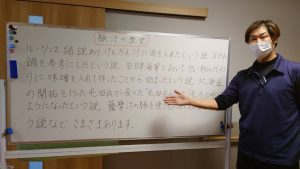 豚汁の歴史
ルーツは諸説ありけんちん汁に肉を入れたという説 ぼたん
鍋を参考にしたという説 旧日本海軍において カレー粉の代わ
りに味噌を入れて作ったことから始まったという説 北海道
の開拓を行った屯田兵が食べた
ようになったという説 薩摩汁の豚を使
う説など さまざまあります。